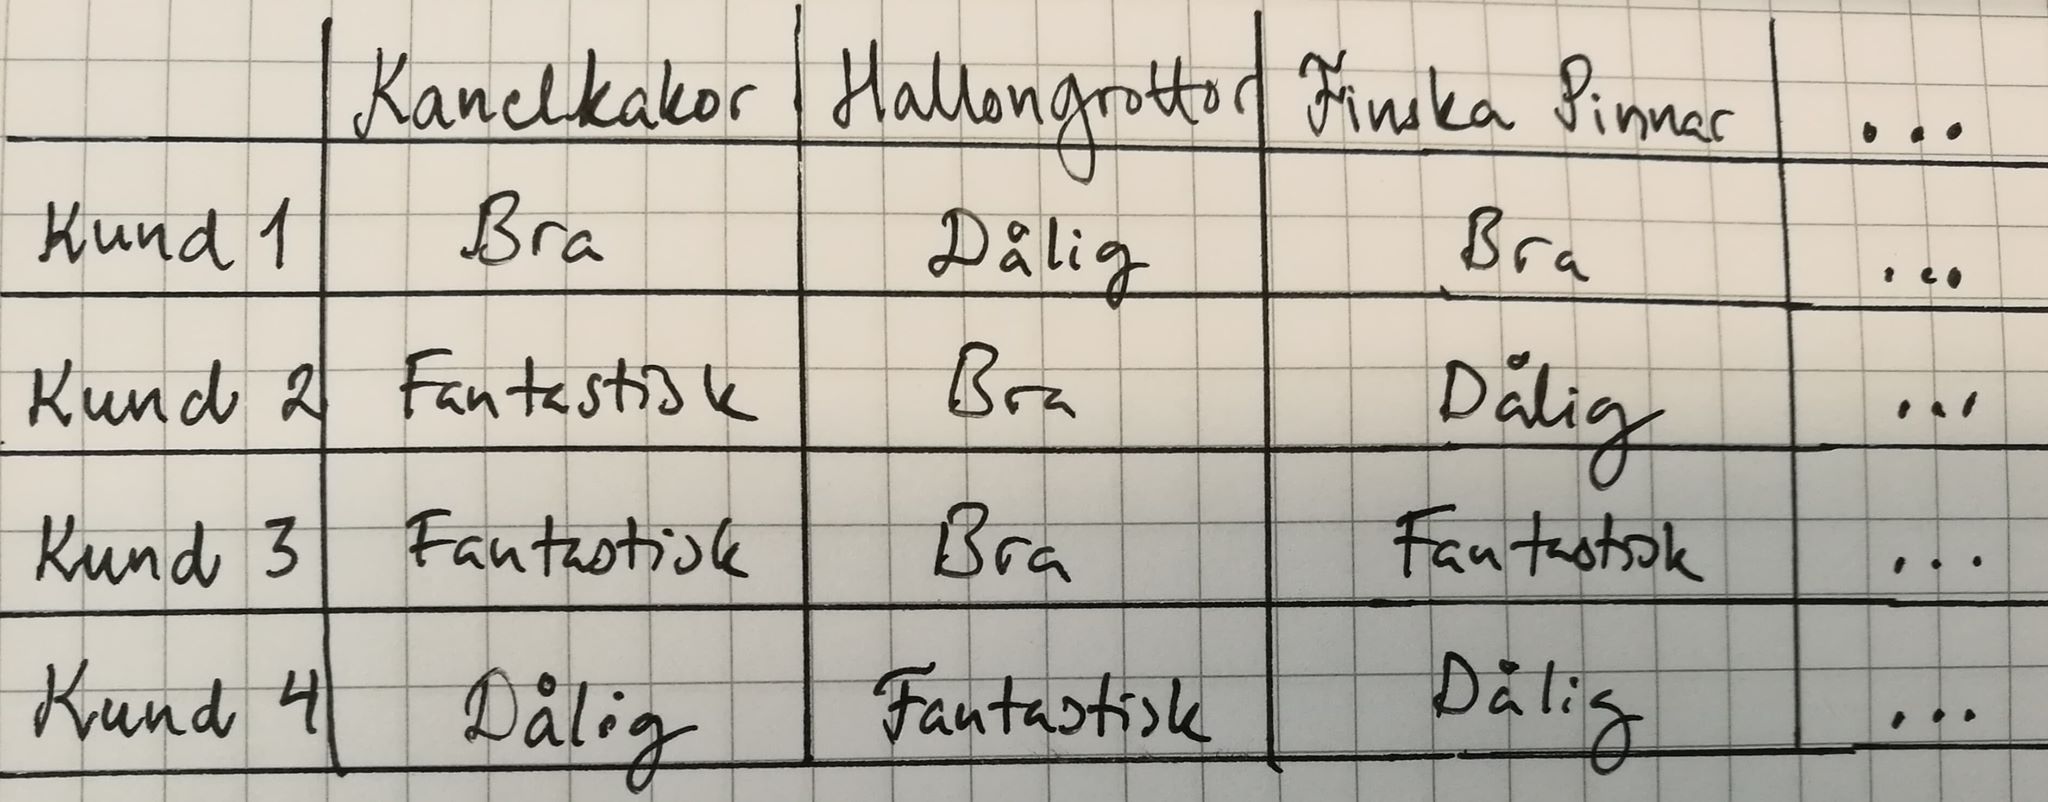 Kanelkakor Hallongrottor Finska Pinnar ...
Kund 1 Bra Dålig Bra ...
Kund 2 Fantastisk Bra Dålig ...
Kund 3 Fantastisk Bra Fantastisk ...
Kund 4 Dålig Fantastisk Dålig ...